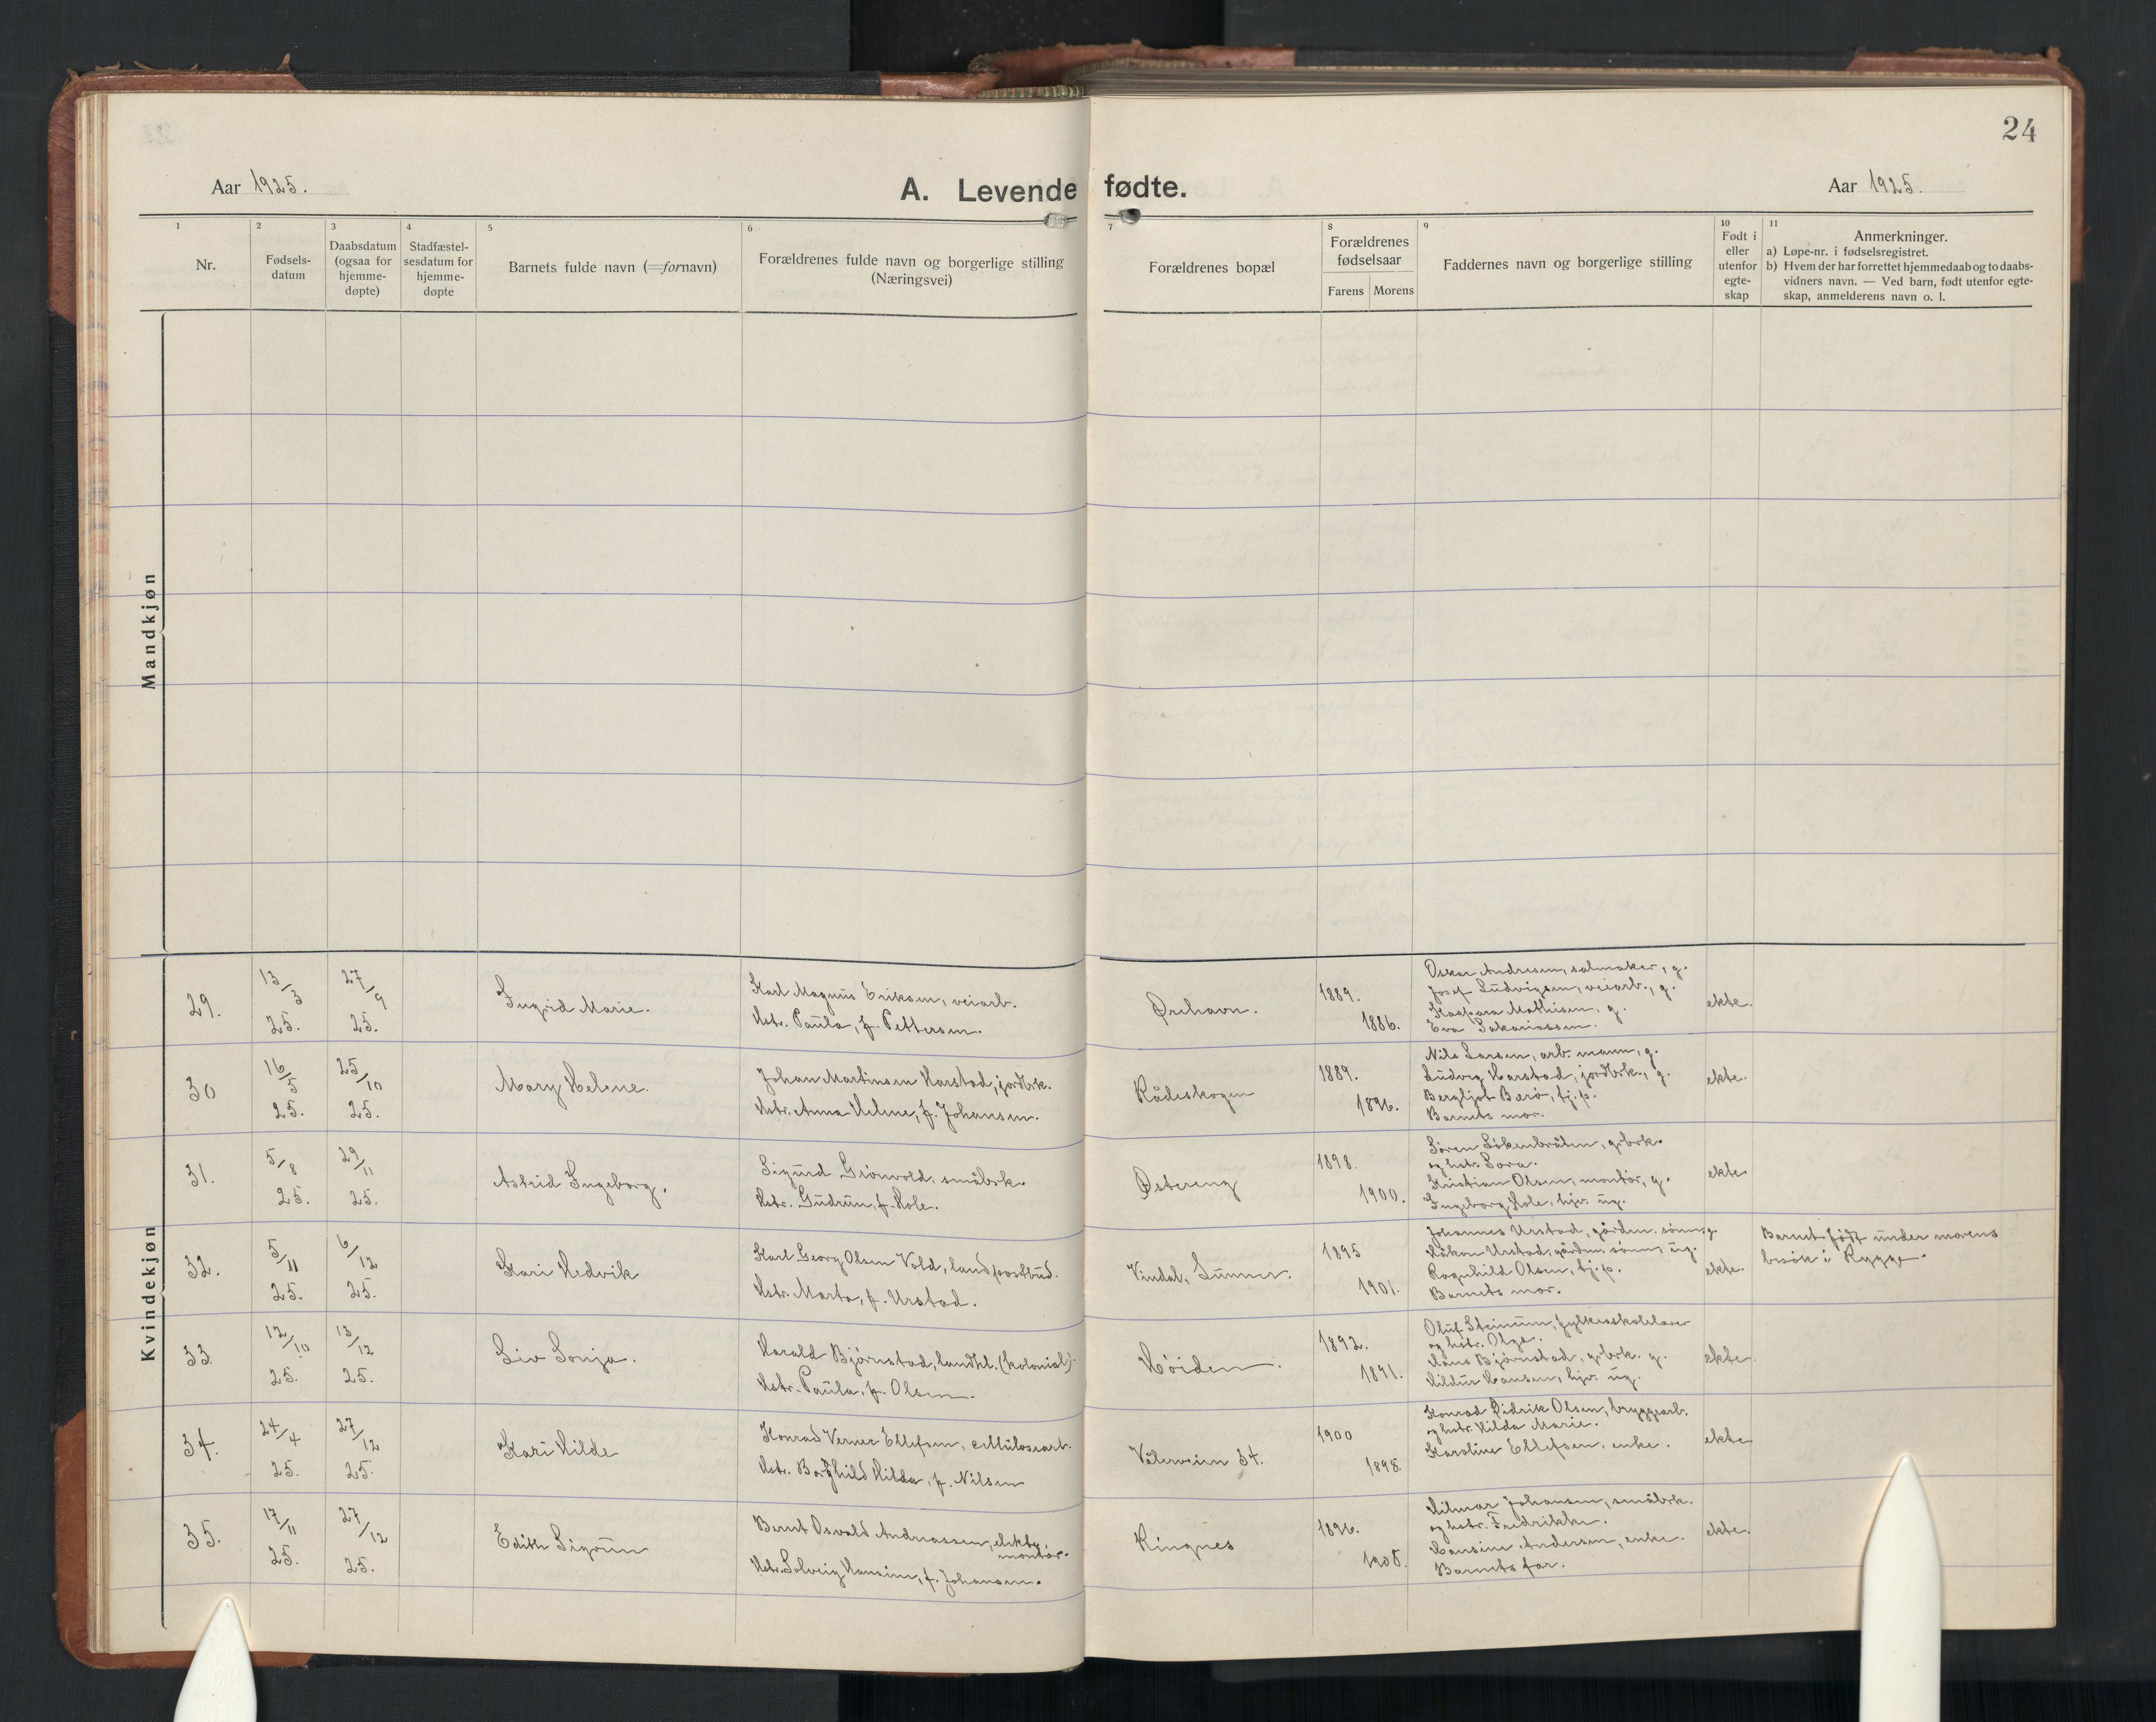 24
Aar 1925.
A. Levende fødte.
Aar 1925.
1 2 3 4 5 6 7 8 9 10 11
Nr.
Fødsels-
datum
Daabsdatum
(ogsaa for
hjemme-
døpte)
Stadfæstel-
sesdatum for
hjemme-
døpte
Barnets fulde navn (=fornavn)
Forældrenes fulde navn og borgerlige stilling
(Næringsvei)
Forældrenes bopæl
Forældrenes
fødselsaar
Farens Morens
Faddernes navn og borgerlige stilling
Født i
eller
utenfor
egte-
skap
Anmerkninger.
a) Løpe-nr. i fødselsregistret.
b) Hvem der har forrettet hjemmedaab og to daabs-
vidners navn. — Ved barn, født utenfor egte-
skap, anmelderens navn o. l.
Mandkjøn
Kvindekjøn
29.
13/3
25.
27/9
25.
Ingrid Marie.
Karl Magnus Eriksen, veiarb.
Hstr. Paula, f. Pettersen.
Ørehavn.
1889.
1886.
Oskar Andresen, salmaker, g.
Josef Ludvigsen, veiarb., g.
Kaspara Mathisen, g.
Eva Sakariassen.
ekte.
30
16/5
25.
25/10
25.
Mary Helene.
Johan Martinsen Harstad, jordbrk.
Hstr. Anna Helene, f. Johansen.
Rådeskogen
1889.
1896.
Nils Larsen, arb. mann, g.
Ludvig Harstad, jordbrk., g.
Bergljot Berø, tj. p.
Barnets mor.
ekte.
31.
5/8
25.
29/11
25.
Astrid Ingeborg.
Sigurd Grønvold, småbrk.
Hstr. Gudrun, f. Hole.
Østereng
1898.
1900.
Søren Løkenbråten, g.brk.
og hstr. Lora.
Kristian Olsen, montør, g.
Ingeborg Hole, hjv. ug.
ekte.
32.
5/11
25.
6/12
25.
Kari Hedvik
Karl Georg Olsen Vold, landpostbud.
Hstr. Marta, f. Urstad.
Vindal, Lunner.
1895
1901.
Johannes Urstad, gårdm. sønn, g.
Håkon Urstad, gårdm. sønn, ug.
Ragnhild Olsen, tj. p.
Barnets mor.
ekte.
Barnet født under morens
besøk i Rygge.
33.
12/10
25.
13/12
25.
Liv Sonja.
Harald Bjørnstad, landhl. (kolonial).
Hstr. Paula, f. Olsen.
Høiden.
1892.
1891.
Oluf Steinum, fylkesskolelærer
og hstr. Olga.
Hans Bjørnstad, g.brk. g.
Hildur Hansen, hjv. ug.
ekte.
34.
24/4
25.
27/12
25.
Kari Hilde
Konrad Verner Ellefsen, cellulosearb.
Hstr. Borghild Hilda, f. Nilsen
Vålerveien 34.
1900
1898.
Konrad Didrik Olsen, bryggearb.
og hstr. Hilda Marie.
Karoline Ellefsen, enke.
ekte.
35.
17/11
25.
27/12
25.
Edith Sigrun
Bernt Osvald Andreassen, elektr.
montør.
Hstr. Solveig Hansine, f. Johansen.
Ringnes
1896.
1905.
Hilmar Johansen, småbrk.
og hstr. Fredrikke.
Hansine Andersen, enke.
Barnets far.
ekte.